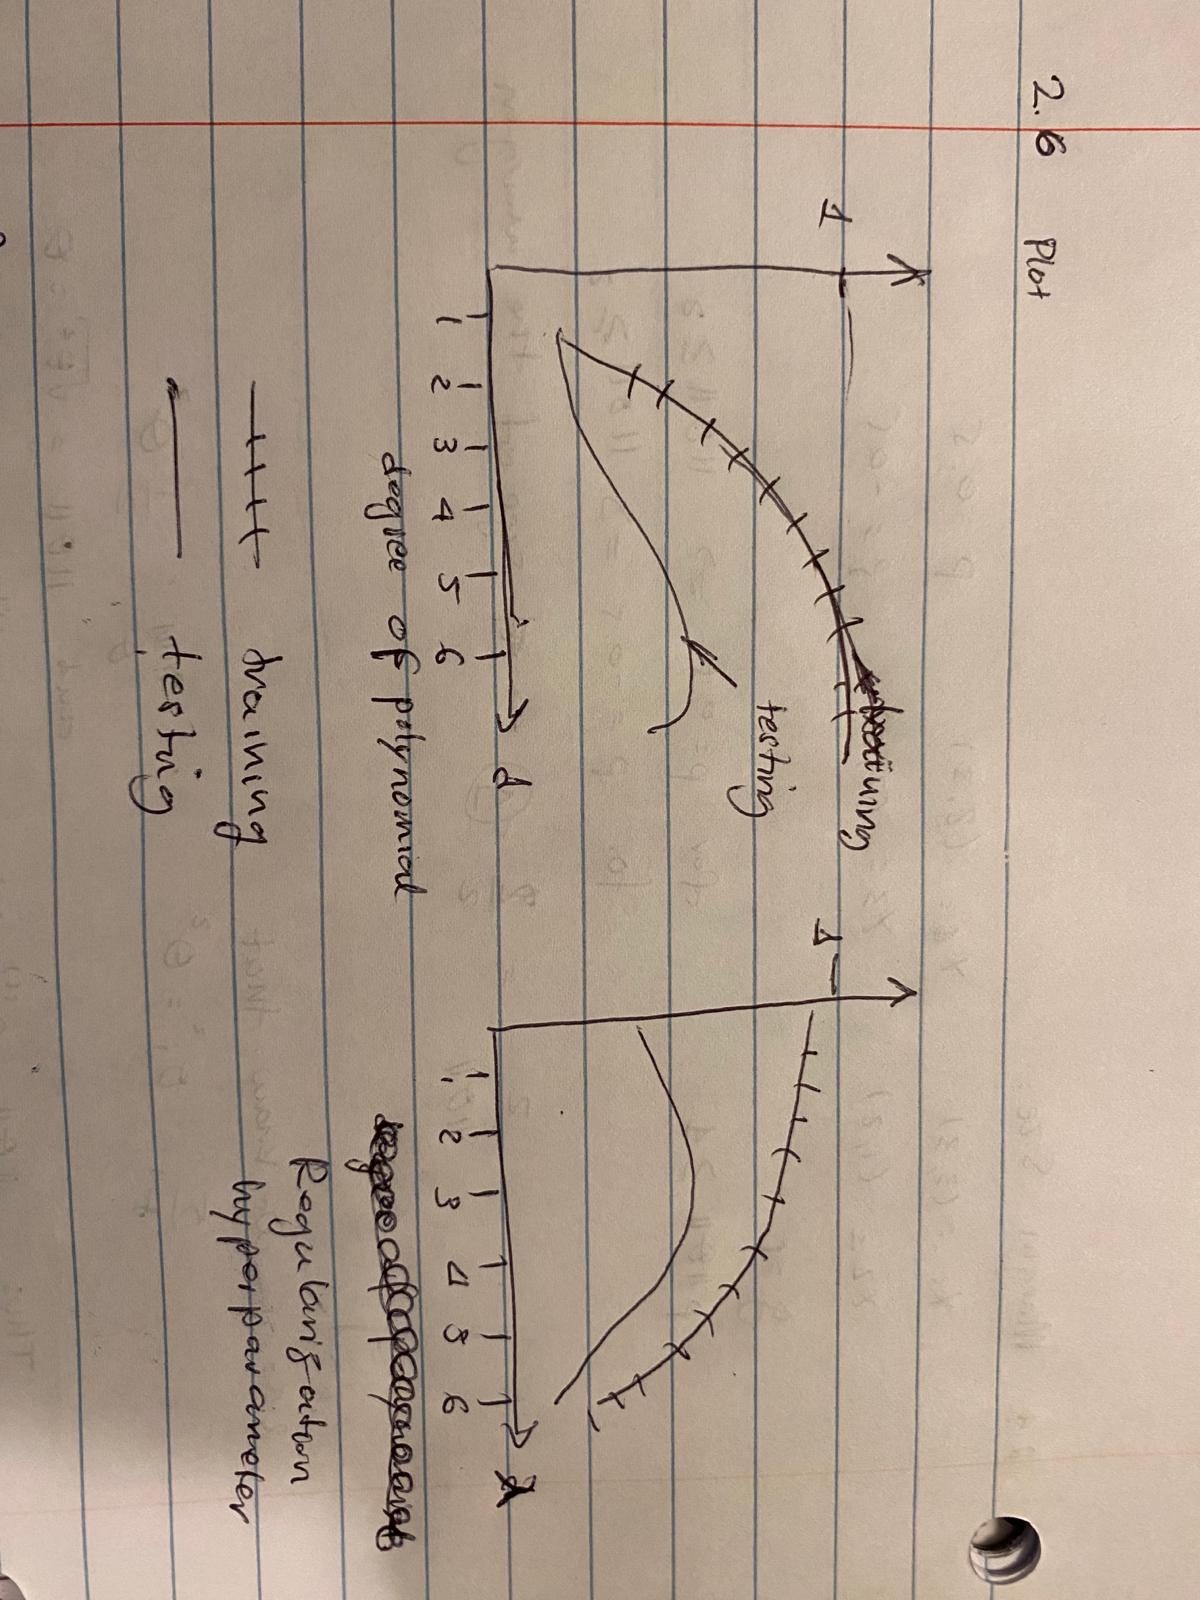 2.6 Plot
1
training
testing
1 2 3 4 5 6
d
degree of polynomial
training
testing
1
1 2 3 4 5 6
λ
Regularisation
hyperparameter